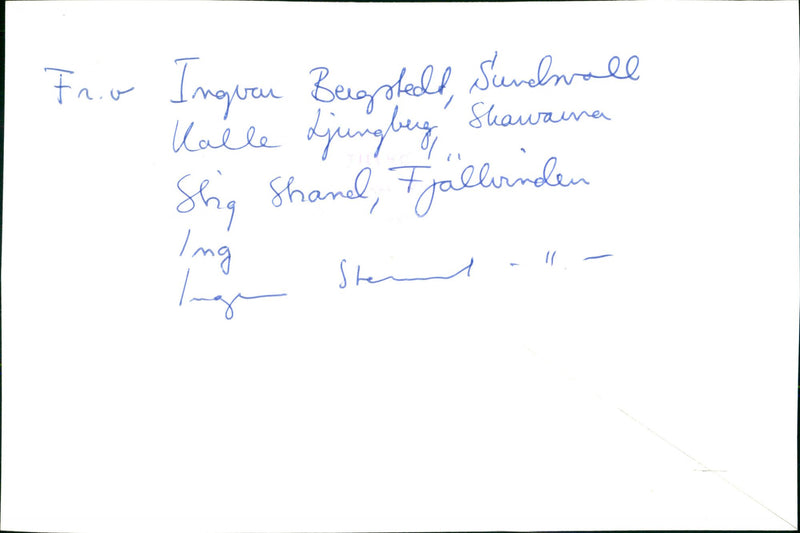 Fr. v Ingvar Bergstedt, Sundsvall
Kalle Ljungberg,
Stig Strand, Fjällvinden
Ing
Ingemar Stenmark - " -